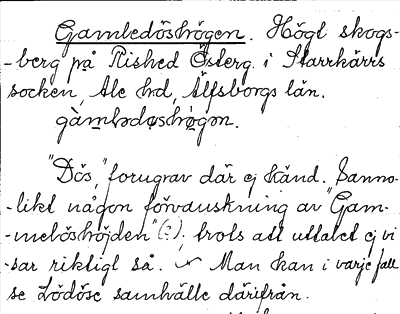 Gambledöshögen. Högt skogs-
-berg på Rished Österg. i Starrkärrs
socken, Ale hd, Älfsborgs län.
gàmblədøshø̀gən.
"Dös," forngrav där ej känd. Sanno-
-likt någon förvanskning av "Gam-
-melöshöjden" (?), trots att uttalet ej vi
-sar riktigt så. Man kan i varje fall
se Lödöse samhälle därifrån.